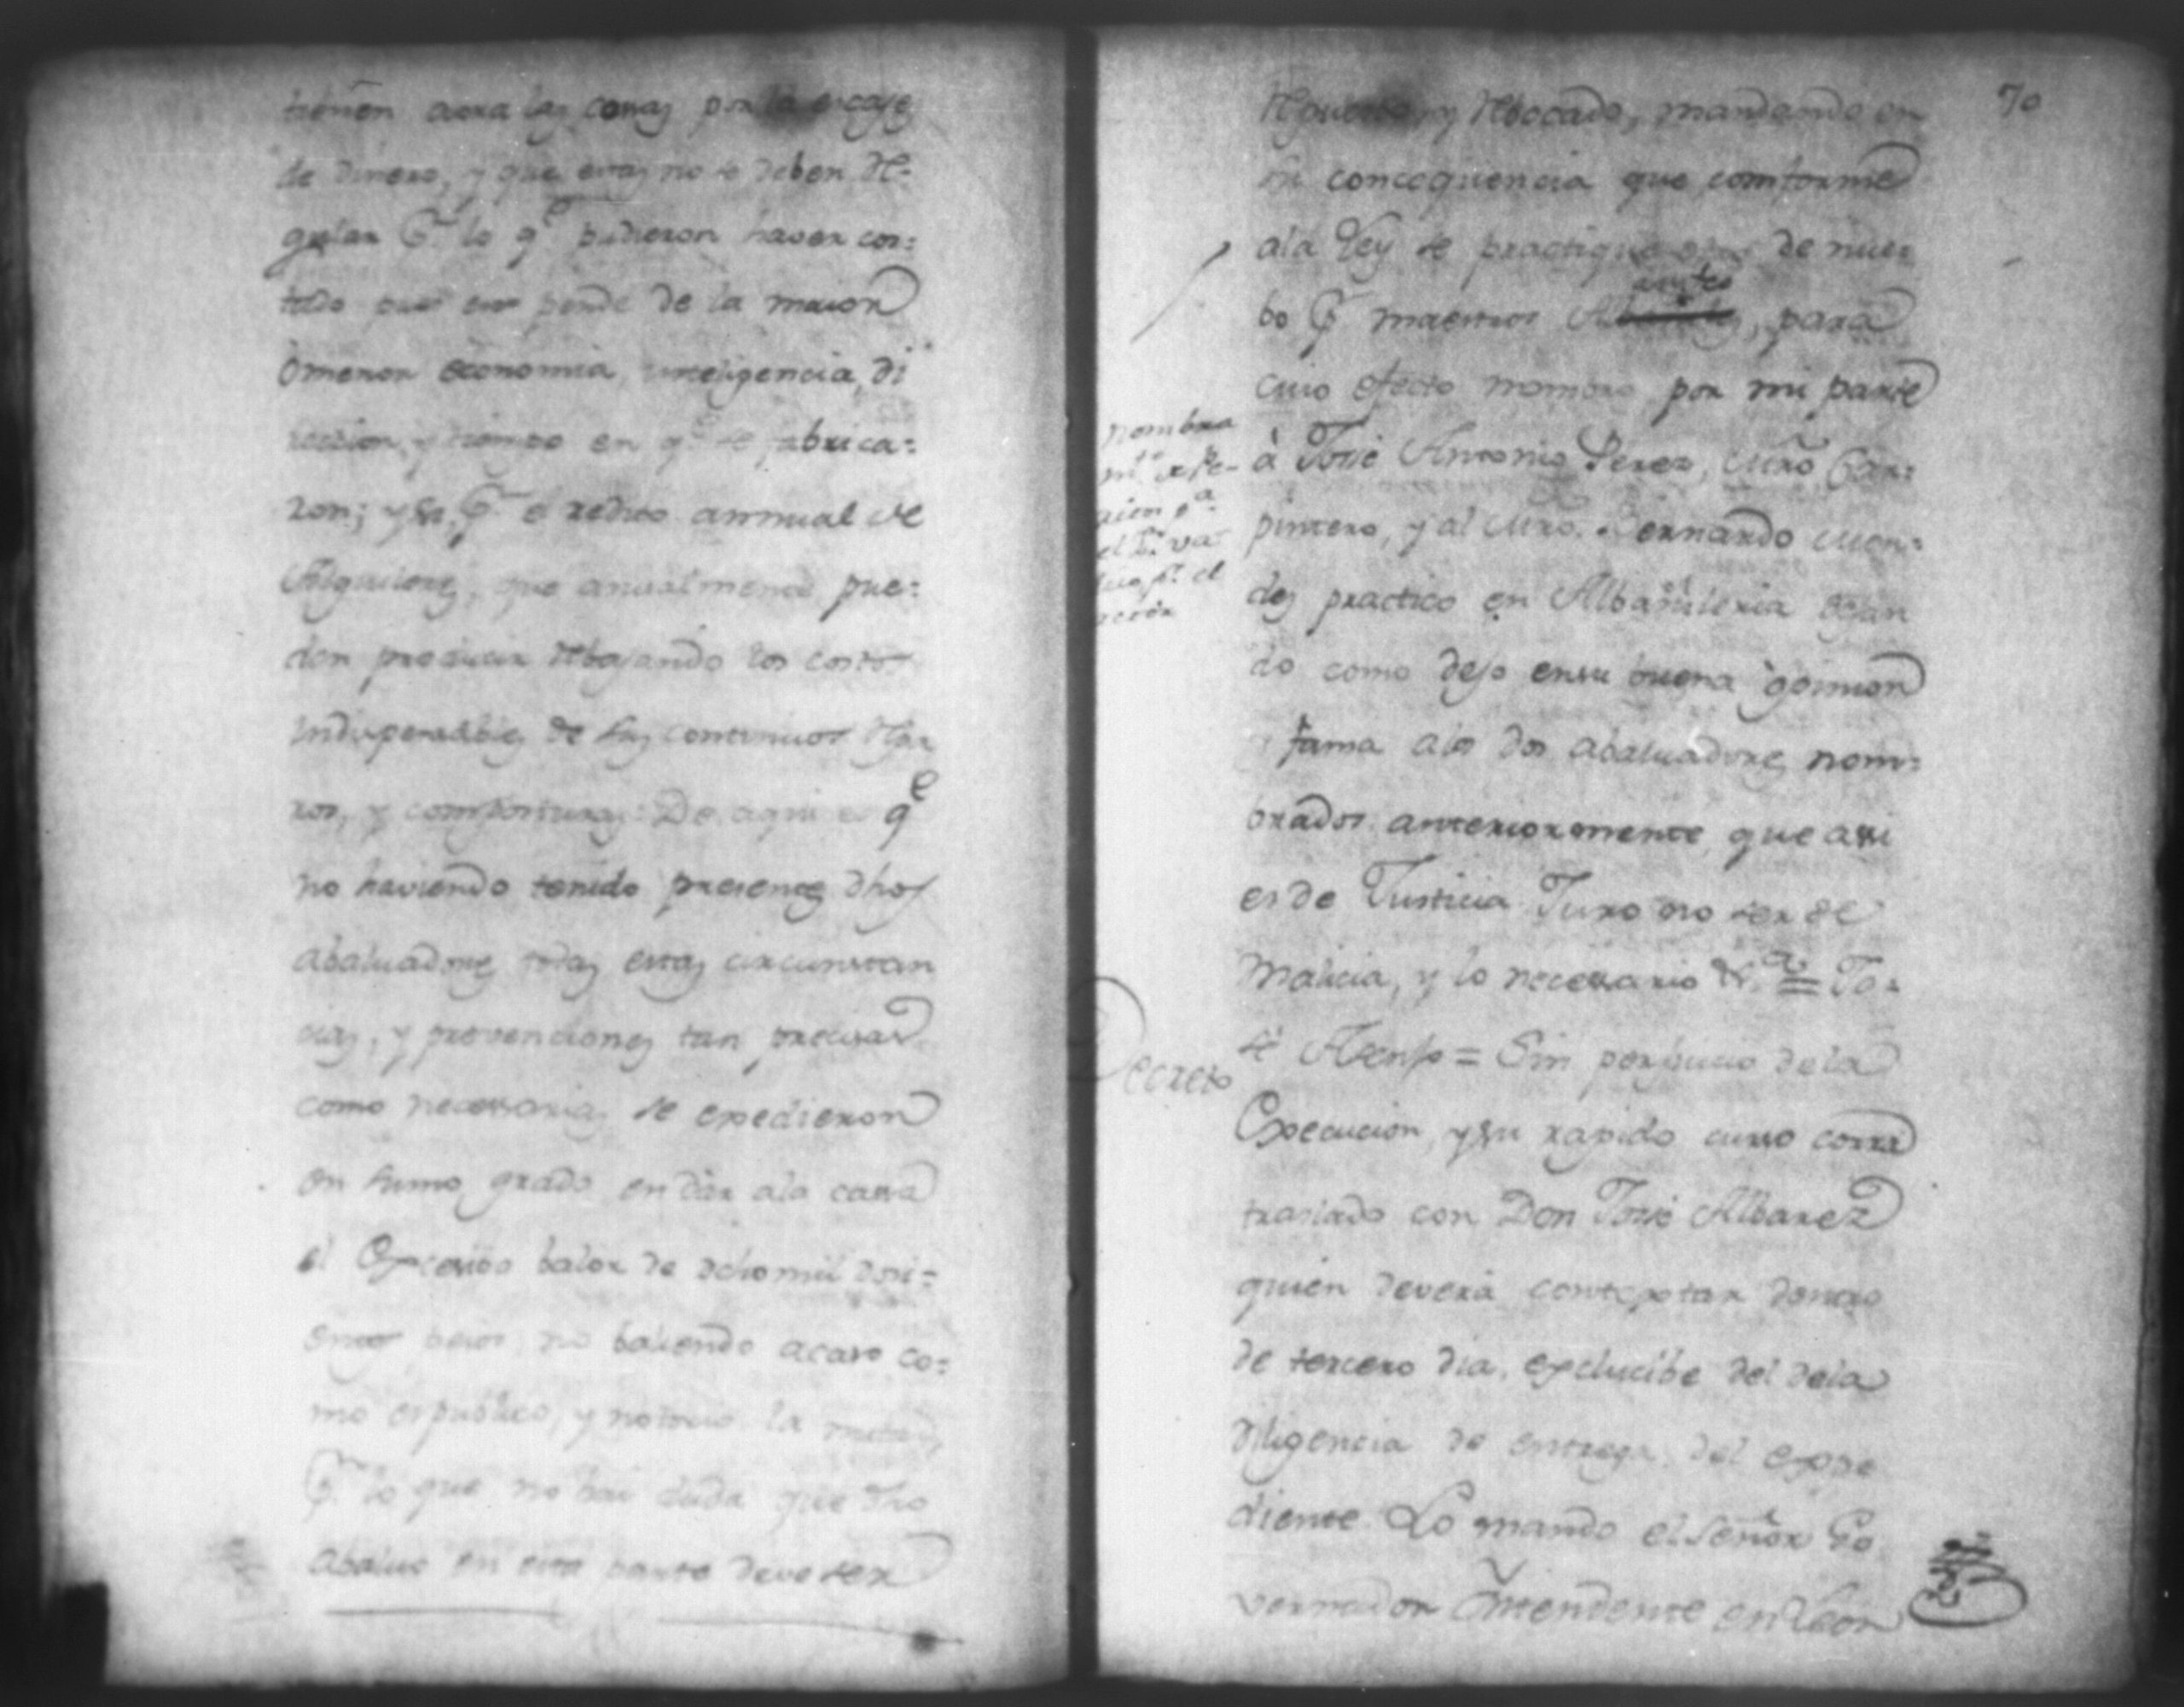 tienen aora las cosas por la escases
de dinero, y que estas no se deben re=
gular Pr. lo qe pudieron haver cos=
tado pues eso pende de la maior
ò menor economia, inteligencia, di
reccion, y tiempo en qe se fabrica=
ron; y si, Pr. el redito annual de
Alquileres, que anualmente pue=
den producir rebajando los costos
indispensables de sus continuos repa
ros, y composturas: De aqui es qe
no haviendo tenido presentes dhos
abaluadores todas estas circunstan
cias, y prevenciones tan precisas
como necessarias se expedieron
en sumo grado en dar ala cassa
el Excesibo balor de ochomil dosi=
entos pesos, no baliendo acaso co=
mo es publico, y notorio la mitad,
Pr. lo que no hai duda que dho
abaluo en esta parte deve ser
70
repuesto, y rebocado, mandando en
su concequencia que comforme
ala Ley se practique de nue=
bo Pr. maestros antes, para
cuio efecto nombro por mi parte
à José Antonio Perez, Mro Car=
pintero, y al Mro. Bernardo Men=
des practico en Albañileria dejan
do como dejo en su buena opinion
y fama alos dos abaluadores nom=
brados anteriormente, que assi
es de Justicia Juro no ser de
Malicia, y lo necessario &.a = Jo=
sé Asenjo = Sin perjuicio dela
Execucion, y su rapido curso corra
traslado con Don José Albarez
quien deverá contextar dentro
de tercero dia, exclucibe del dela
diligencia de entrega del expe
diente. Lo mando el Señor Go
vernador Yntendente en Leon
nombra
el
Decreto